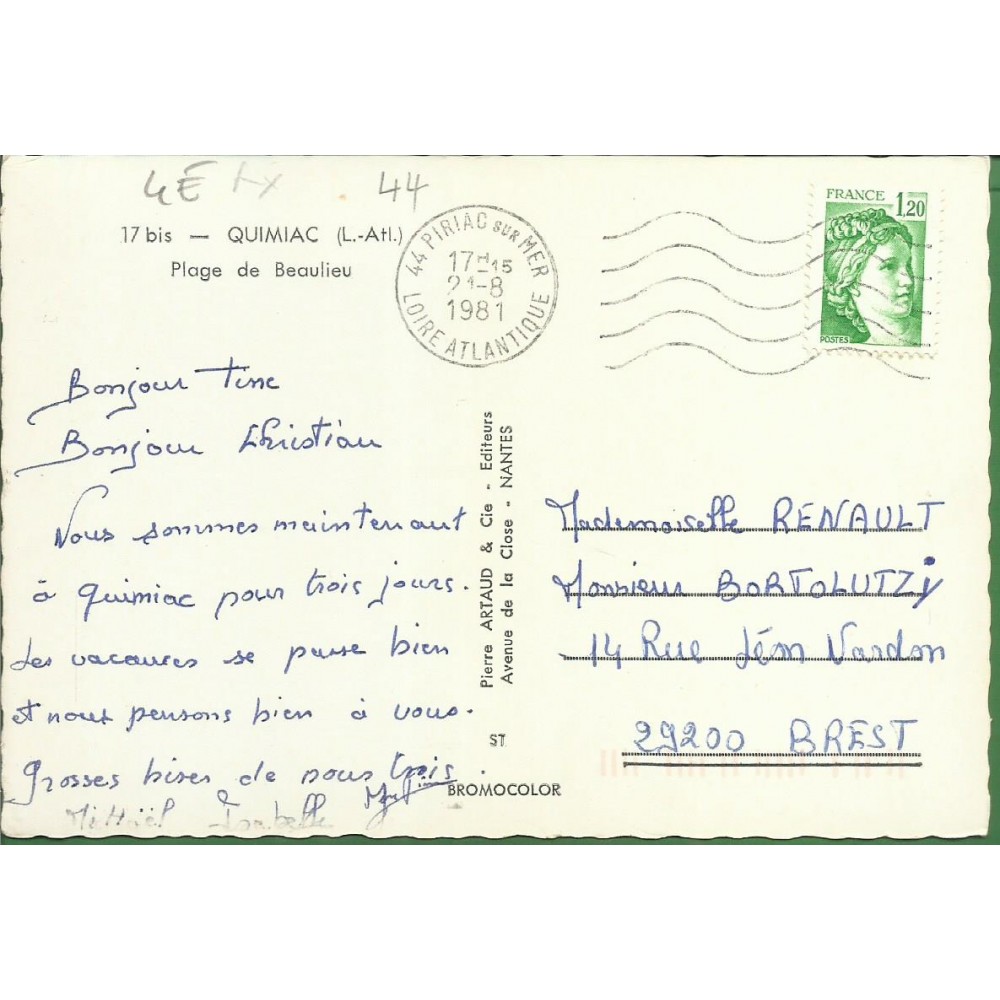 4E
44
17 bis — QUIMIAC (L.-Atl.)
Plage de Beaulieu
44 PIRIAC SUR MER
17H15
21-8
1981
LOIRE ATLANTIQUE
FRANCE 1,20
POSTES
Bonjour Tine
Bonjour Christian
Nous sommes maintenant
à Quimiac pour trois jours.
Les vacances se passe bien
et nous pensons bien à vous.
Grosses bises de nous trois.
Isabelle
Pierre ARTAUD & Cie - Editeurs
Avenue de la Close - NANTES
ST
BROMOCOLOR
Mademoiselle RENAULT
Monsieur BORTOLUTZI
14 Rue Léon Nardon
29200 BREST